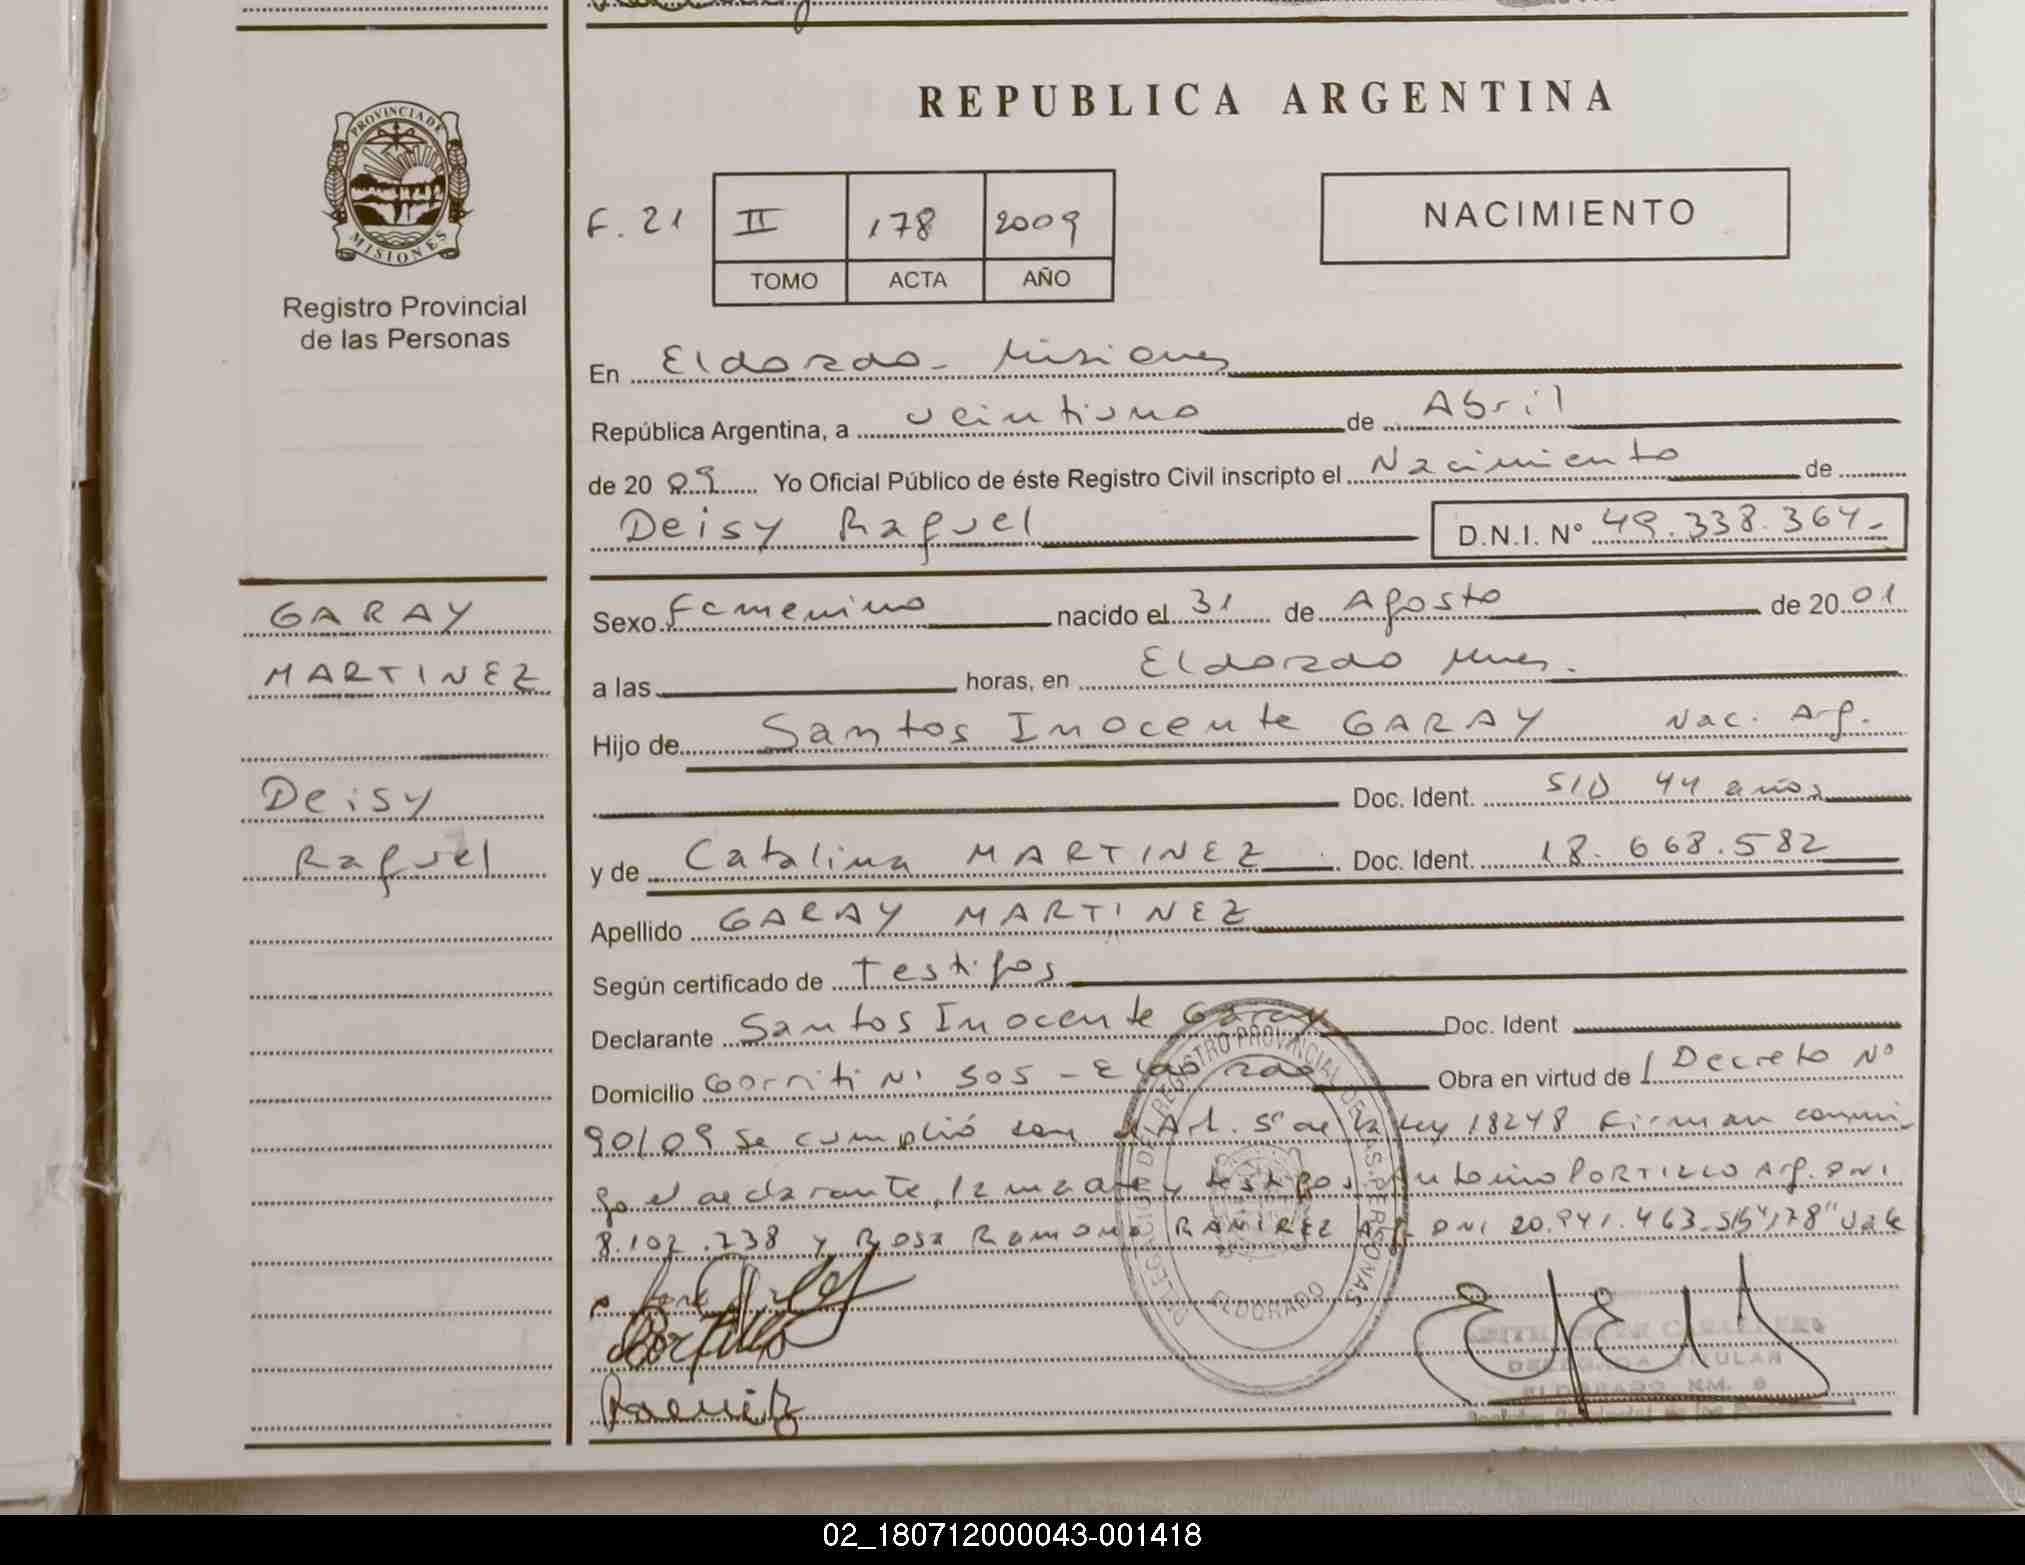 REPUBLICA ARGENTINA
PROVINCIA DE
MISIONES
Registro Provincial
de las Personas
F. 21 II 178 2009
TOMO ACTA AÑO
NACIMIENTO
En Eldorado - Misiones
República Argentina, a veintiuno de Abril
de 2009 Yo Oficial Público de éste Registro Civil inscripto el Nacimiento de
Deisy Raquel D.N.I. Nº 49.338.364.-
GARAY
MARTINEZ
Deisy
Raquel
Sexo Femenino nacido el 31 de Agosto de 2001
a las horas, en Eldorado Mnes.
Hijo de Santos Inocente GARAY Nac. Arg.
Doc. Ident. S/D 44 años
y de Catalina MARTINEZ Doc. Ident. 18.668.582
Apellido GARAY MARTINEZ
Según certificado de Testigos
Declarante Santos Inocente Garay Doc. Ident
Domicilio Gorriti Nº 505 - Eldorado Obra en virtud de Decreto Nº
90/09 se cumplió con el Art. 5º de la Ley 18248 Firman conmi
go el declarante, la madre y testigos Antonio PORTILLO Arg. DNI
8.102.738 y Rosa Ramona RAMIREZ Arg. DNI 20.941.463 S/b "178" Vale
DELEGACION DEL REGISTRO PROVINCIAL DE LAS PERSONAS
ELDORADO
Portillo
DELEGADA TITULAR
ELDORADO KM. 9
Registro Provincial de las Personas
02_180712000043-001418